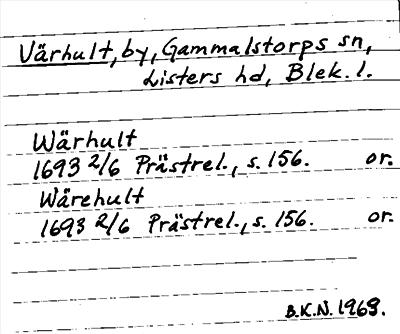 Värhult, by, Gammalstorps sn,
Listers hd, Blek. l.
Wärhult
1693 2/6 Prästrel., s. 156. or.
Wärehult
1693 2/6 Prästrel., s. 156. or.
B.K.N. 1969.